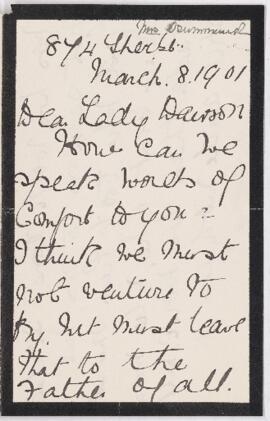 Mrs Drummond
874 Sherb.
March. 8. 1901
Dear Lady Dawson
How can we
speak words of
Comfort to you -
I think we must
not venture to
try, but must leave
that to the
Father of all.